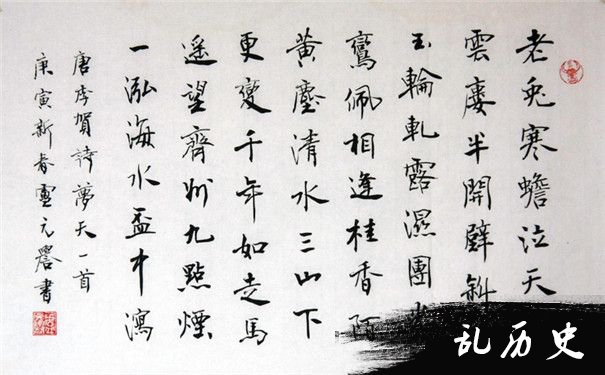 老兔寒蟾泣天
雲廔半開壁斜
玉輪軋露濕團光
鸞佩相逢桂香陌
黄塵清水三山下
更變千年如走馬
遥望齊州九點煙
一泓海水盃中瀉
唐李賀詩夢天一首
庚寅新春靈元書
乱历史